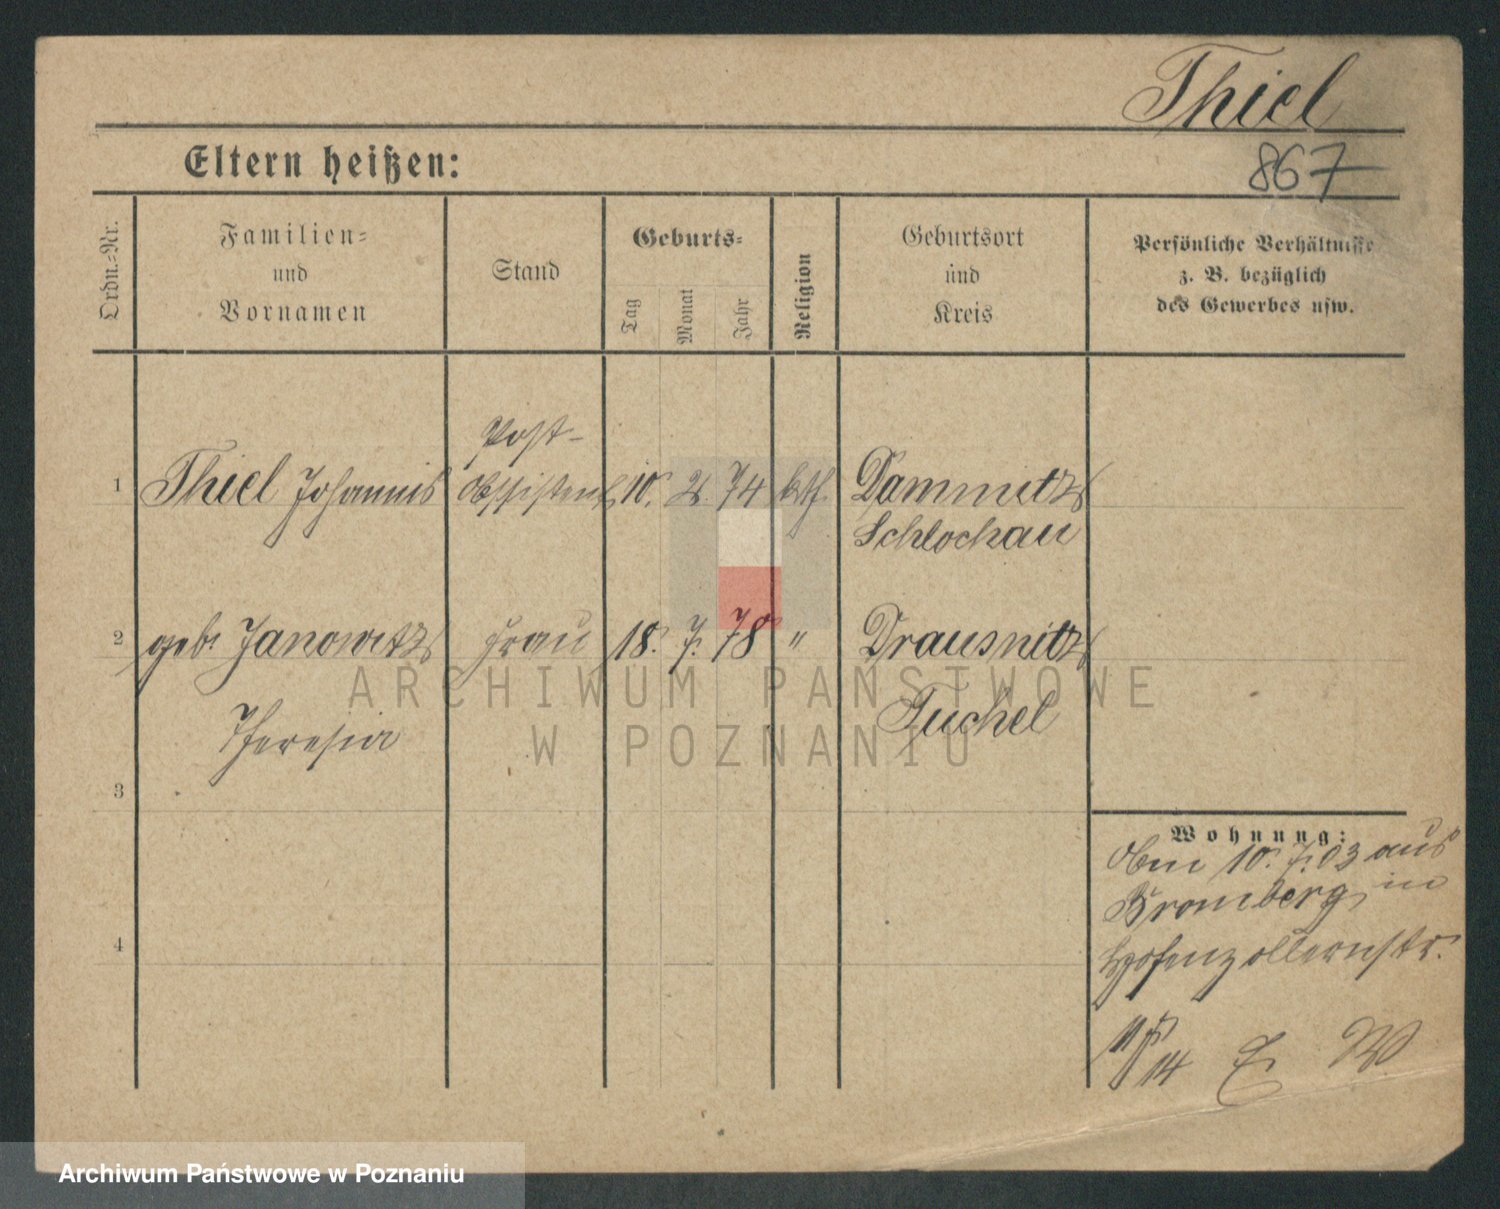 Thiel
867
Eltern heißen:
Ordn.-Nr.
Familien-
und
Vornamen
Stand
Geburts-
Tag
Monat
Jahr
Religion
Geburtsort
und
Kreis
Persönliche Verhältnisse
z. B. bezüglich
des Gewerbes usw.
Post-
1 Thiel Johannes Assistent 10. 2. 74 kth. Dammnitz
Schlochau
2 geb. Janowitz Frau 18. 7. 78 " Drausnitz
Theresia Tuchel
3
4
Wohnung:
Am 10. 7. 03 aus
Bromberg, in
Hohenzollernstr.
11
14 W
ARCHIWUM PAŃSTWOWE
W POZNANIU
Archiwum Państwowe w Poznaniu